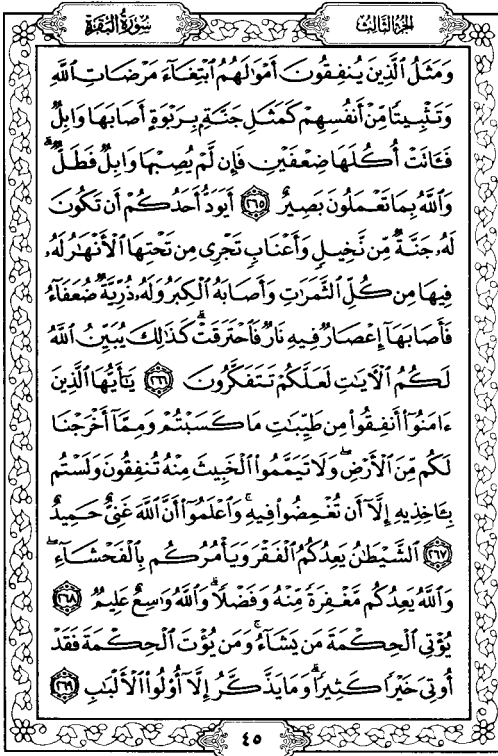 سُورَةُ البَقَرَةِ
الجُزءُ الثَّالِث
وَمَثَلُ ٱلَّذِينَ يُنفِقُونَ أَمْوَٰلَهُمُ ٱبْتِغَآءَ مَرْضَاتِ ٱللَّهِ
وَتَثْبِيتًا مِّنْ أَنفُسِهِمْ كَمَثَلِ جَنَّةٍۭ بِرَبْوَةٍ أَصَابَهَا وَابِلٌ
فَـَٔاتَتْ أُكُلَهَا ضِعْفَيْنِ فَإِن لَّمْ يُصِبْهَا وَابِلٌ فَطَلٌّ ۗ
وَٱللَّهُ بِمَا تَعْمَلُونَ بَصِيرٌ ٢٦٥ أَيَوَدُّ أَحَدُكُمْ أَن تَكُونَ
لَهُۥ جَنَّةٌ مِّن نَّخِيلٍ وَأَعْنَابٍ تَجْرِى مِن تَحْتِهَا ٱلْأَنْهَٰرُ لَهُۥ
فِيهَا مِن كُلِّ ٱلثَّمَرَٰتِ وَأَصَابَهُ ٱلْكِبَرُ وَلَهُۥ ذُرِّيَّةٌ ضُعَفَآءُ
فَأَصَابَهَآ إِعْصَارٌ فِيهِ نَارٌ فَٱحْتَرَقَتْ ۗ كَذَٰلِكَ يُبَيِّنُ ٱللَّهُ
لَكُمُ ٱلْـَٔايَٰتِ لَعَلَّكُمْ تَتَفَكَّرُونَ ٢٦٦ يَٰٓأَيُّهَا ٱلَّذِينَ
ءَامَنُوٓا۟ أَنفِقُوا۟ مِن طَيِّبَٰتِ مَا كَسَبْتُمْ وَمِمَّآ أَخْرَجْنَا
لَكُم مِّنَ ٱلْأَرْضِ ۖ وَلَا تَيَمَّمُوا۟ ٱلْخَبِيثَ مِنْهُ تُنفِقُونَ وَلَسْتُم
بِـَٔاخِذِيهِ إِلَّآ أَن تُغْمِضُوا۟ فِيهِ ۚ وَٱعْلَمُوٓا۟ أَنَّ ٱللَّهَ غَنِىٌّ حَمِيدٌ
٢٦٧ ٱلشَّيْطَٰنُ يَعِدُكُمُ ٱلْفَقْرَ وَيَأْمُرُكُم بِٱلْفَحْشَآءِ ۖ
وَٱللَّهُ يَعِدُكُم مَّغْفِرَةً مِّنْهُ وَفَضْلًا ۗ وَٱللَّهُ وَٰسِعٌ عَلِيمٌ ٢٦٨
يُؤْتِى ٱلْحِكْمَةَ مَن يَشَآءُ ۚ وَمَن يُؤْتَ ٱلْحِكْمَةَ فَقَدْ
أُوتِىَ خَيْرًا كَثِيرًا ۗ وَمَا يَذَّكَّرُ إِلَّآ أُو۟لُوا۟ ٱلْأَلْبَٰبِ ٢٦٩
٤٥